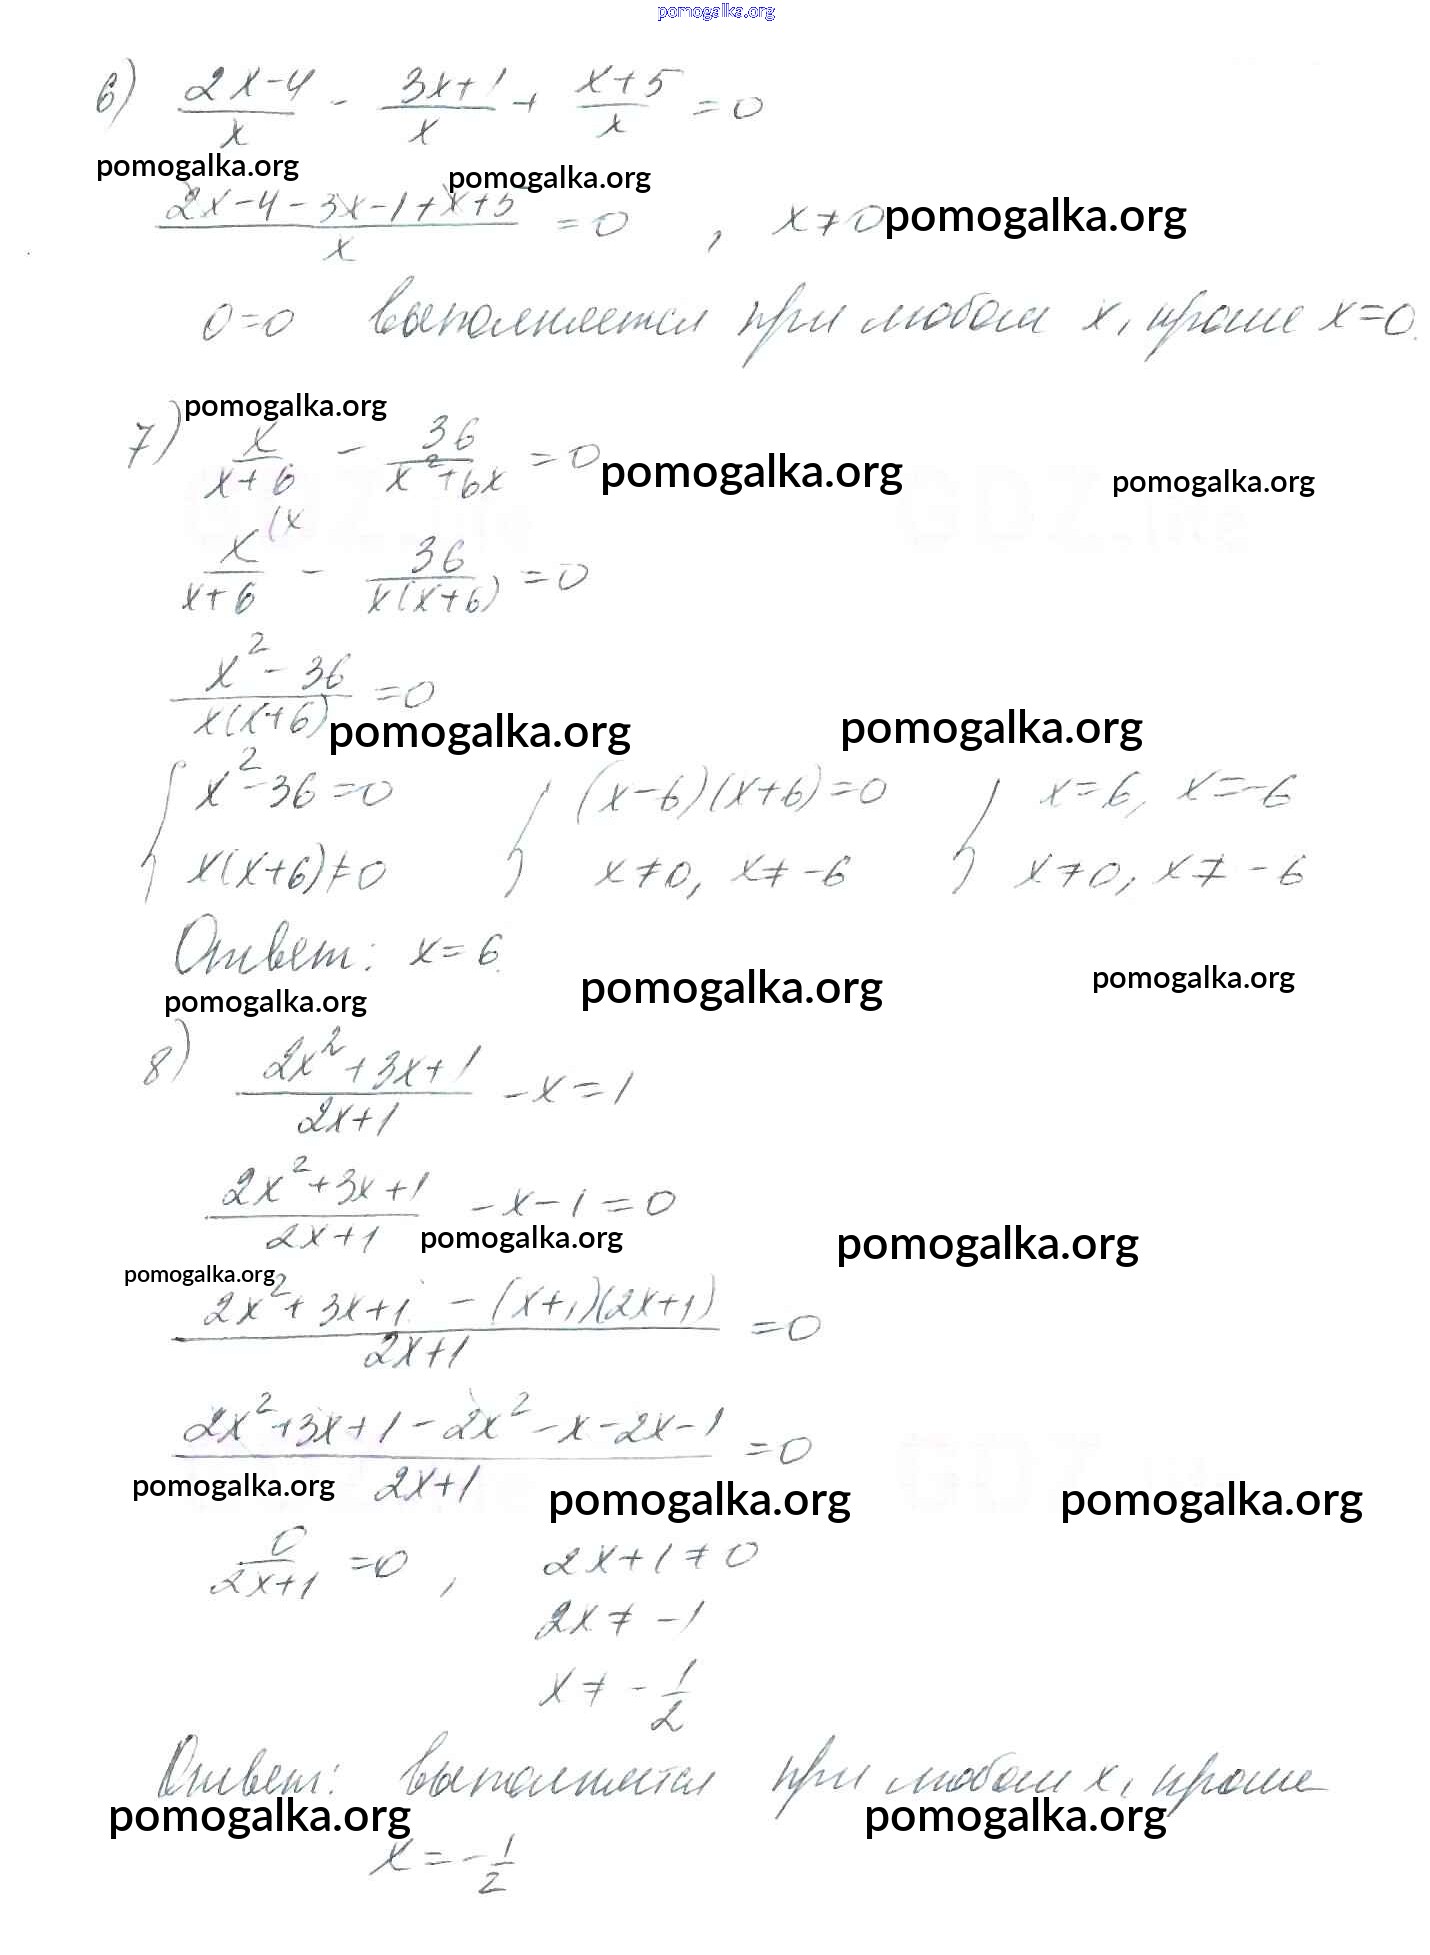 pomogalka.org
6) (2x-4)/x - (3x+1)/x + (x+5)/x = 0
pomogalka.org pomogalka.org
(2x-4-3x-1+x+5)/x = 0 , x≠0 pomogalka.org
0=0 выполняется при любом x, кроме x=0.
pomogalka.org
7) x/(x+6) - 36/(x²+6x) = 0 pomogalka.org pomogalka.org
x(x/(x+6) - 36/(x(x+6)) = 0
(x²-36)/(x(x+6)) = 0
pomogalka.org pomogalka.org
{ x²-36=0 { (x-6)(x+6)=0 { x=6, x=-6
x(x+6)≠0 x≠0, x≠-6 x≠0, x≠-6
Ответ: x=6.
pomogalka.org pomogalka.org pomogalka.org
8) (2x²+3x+1)/(2x+1) - x = 1
(2x²+3x+1)/(2x+1) - x - 1 = 0
pomogalka.org pomogalka.org
pomogalka.org
(2x²+3x+1 - (x+1)(2x+1))/(2x+1) = 0
(2x²+3x+1-2x²-x-2x-1)/(2x+1) = 0
pomogalka.org pomogalka.org pomogalka.org
0/(2x+1) = 0 , 2x+1≠0
2x≠-1
x≠-1/2
Ответ: выполняется при любом x, кроме
pomogalka.org pomogalka.org
x=-1/2